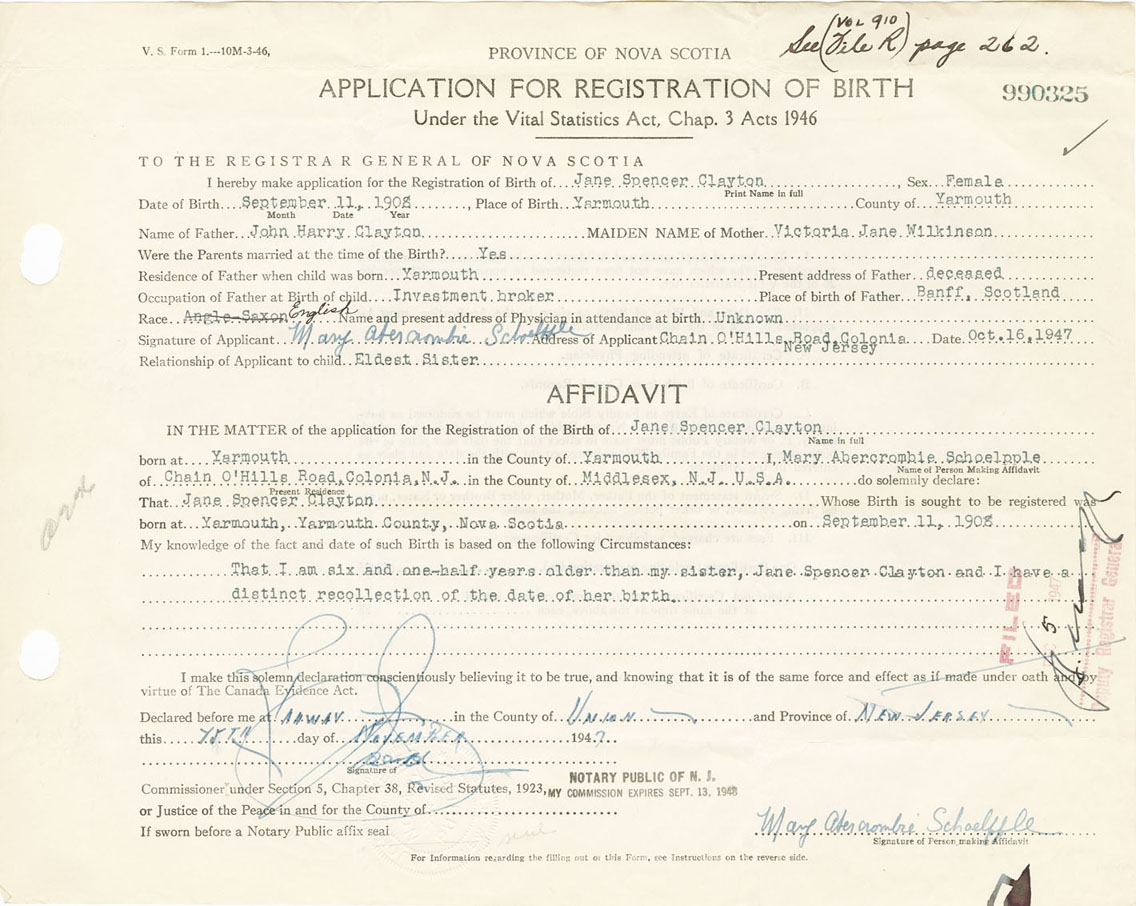 V. S. Form 1.---10M-3-46,
PROVINCE OF NOVA SCOTIA
See (Vol 910 File R) page 262.
APPLICATION FOR REGISTRATION OF BIRTH
990325
Under the Vital Statistics Act, Chap. 3 Acts 1946
TO THE REGISTRAR GENERAL OF NOVA SCOTIA
I hereby make application for the Registration of Birth of Jane Spencer Clayton, Sex Female
Print Name in full
Date of Birth September 11, 1908, Place of Birth Yarmouth County of Yarmouth
Month Date Year
Name of Father John Harry Clayton MAIDEN NAME of Mother Victoria Jane Wilkinson
Were the Parents married at the time of the Birth? Yes
Residence of Father when child was born Yarmouth Present address of Father deceased
Occupation of Father at Birth of child Investment broker Place of birth of Father Banff, Scotland
Race Anglo-Saxon English Name and present address of Physician in attendance at birth Unknown
Signature of Applicant Mary Abercrombie Schoelffle Address of Applicant Chain O'Hills Road, Colonia New Jersey Date Oct. 16, 1947
Relationship of Applicant to child Eldest Sister
AFFIDAVIT
IN THE MATTER of the application for the Registration of the Birth of Jane Spencer Clayton
Name in full
born at Yarmouth in the County of Yarmouth I, Mary Abercrombie Schoelpple
Name of Person Making Affidavit
of Chain O'Hills Road, Colonia, N.J. in the County of Middlesex, N.J. U.S.A. do solemnly declare:
Present Residence
That Jane Spencer Clayton Whose Birth is sought to be registered was
born at Yarmouth, Yarmouth County, Nova Scotia on September 11, 1908
My knowledge of the fact and date of such Birth is based on the following Circumstances:
That I am six and one-half years older than my sister, Jane Spencer Clayton and I have a
distinct recollection of the date of her birth.
FILED
5 1947
Deputy Registrar General
I make this solemn declaration conscientiously believing it to be true, and knowing that it is of the same force and effect as if made under oath and by
virtue of The Canada Evidence Act.
Declared before me at in the County of Union and Province of New Jersey
this day of November 1947.
Signature of
Commissioner under Section 5, Chapter 38, Revised Statutes, 1923,
NOTARY PUBLIC OF N. J.
MY COMMISSION EXPIRES SEPT. 13, 1948
or Justice of the Peace in and for the County of
If sworn before a Notary Public affix seal
seal
Mary Abercrombie Schoelffle
Signature of Person making Affidavit
For Information regarding the filling out of this Form, see Instructions on the reverse side.